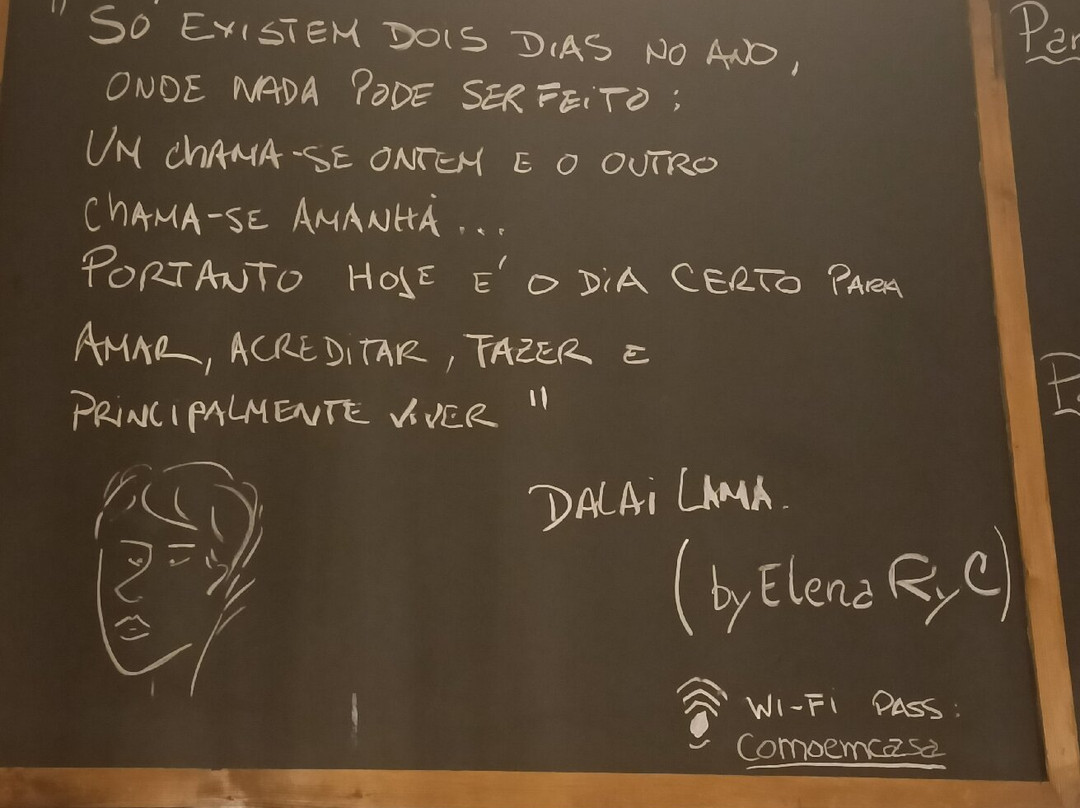 " SÓ EXISTEM DOIS DIAS NO ANO,
ONDE NADA PODE SER FEITO:
UM CHAMA-SE ONTEM E O OUTRO
CHAMA-SE AMANHÃ...
PORTANTO HOJE É O DIA CERTO PARA
AMAR, ACREDITAR, FAZER E
PRINCIPALMENTE VIVER "
DALAI LAMA.
(by Elena RyC)
WI-FI PASS:
Comoemcasa